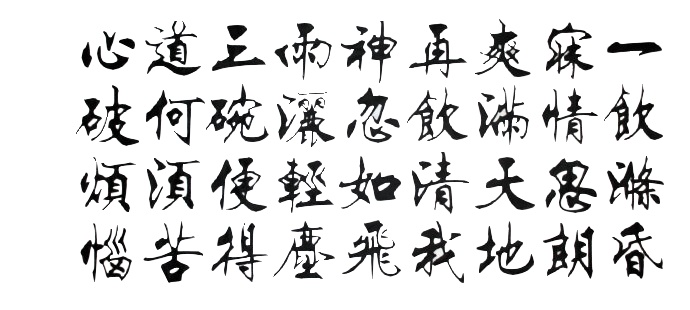 一飲滌昏
寐情思朗
爽滿天地
再飲清我
神忽如飛
雨灑輕塵
三碗便得
道何須苦
心破煩惱